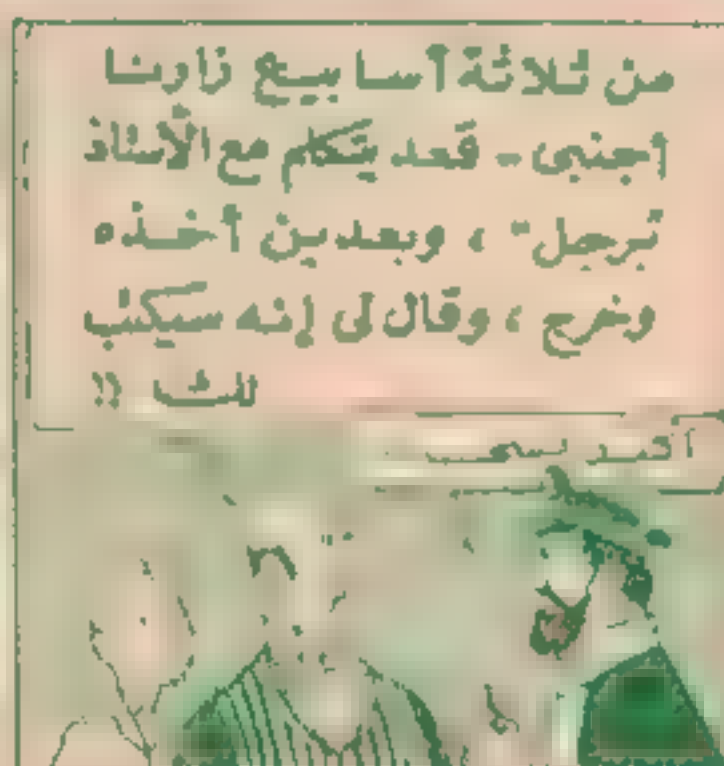 من ثلاثة أسابيع زارنا
أجنبى - قعد يتكلم مع الأستاذ
"برجل" ، وبعدين أخذه
وخرج ، وقال لى إنه سيكتب
لك !!
أحمد سعد